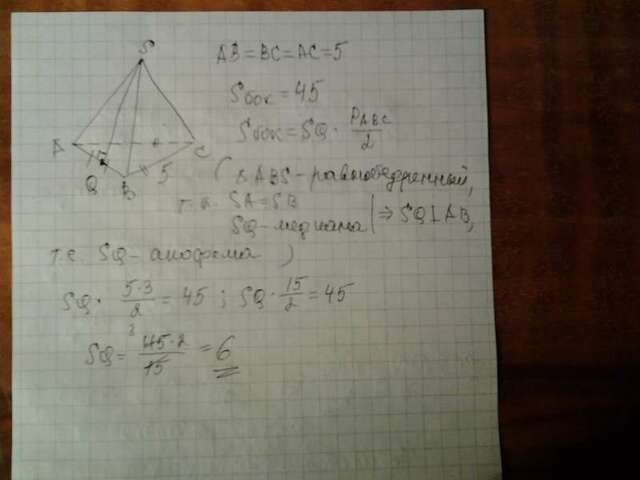 S
A
C
Q
B
5
5
AB = BC = AC = 5
Sбок = 45
Sбок = SQ · PABC / 2
( △ABS - равнобедренный,
т.к. SA = SB
SQ - медиана | ⇒ SQ ⊥ AB,
т.е. SQ - апофема )
SQ · 5·3 / 2 = 45 ; SQ · 15 / 2 = 45
SQ = 45·2 / 15 = 6
3